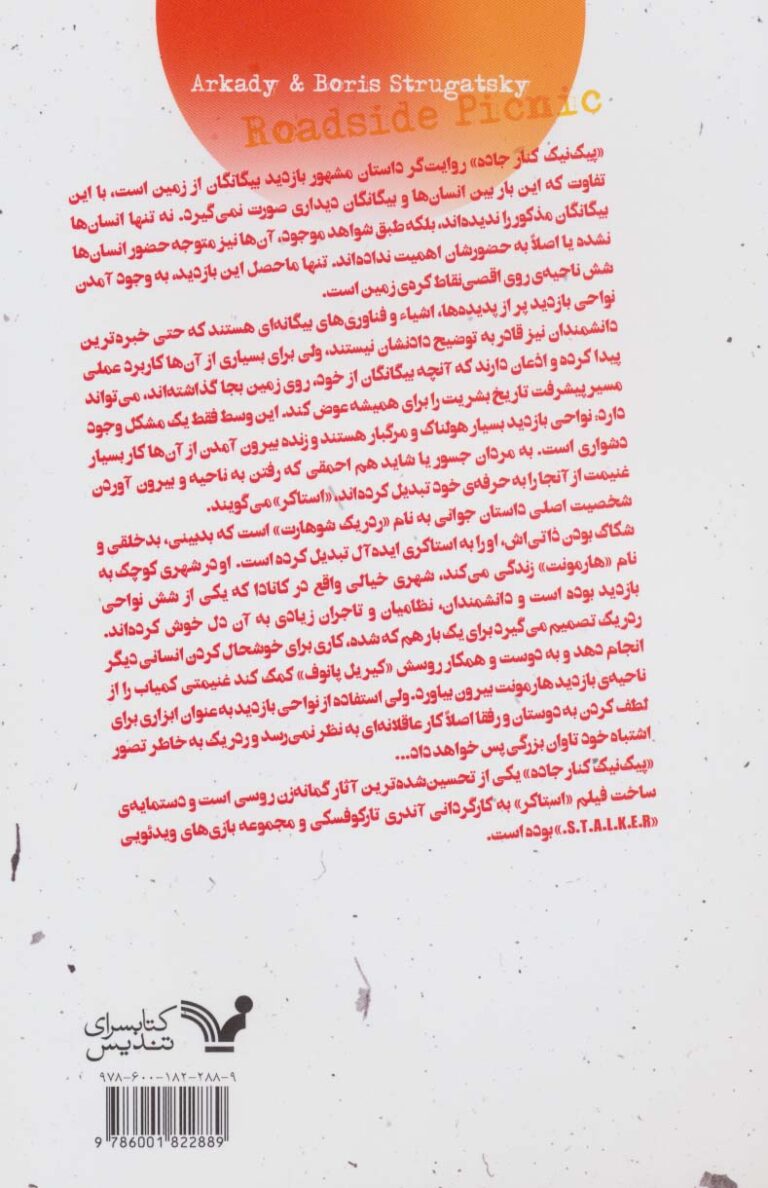 Arkady & Boris Strugatsky
Roadside Picnic
«پیک‌نیک کنار جاده» روایت‌گر داستان مشهور بازدید بیگانگان از زمین است، با این
تفاوت که این بار بین انسان‌ها و بیگانگان دیداری صورت نمی‌گیرد. نه تنها انسان‌ها
بیگانگان مذکور را ندیده‌اند، بلکه طبق شواهد موجود، آن‌ها نیز متوجه حضور انسان‌ها
نشده یا اصلاً به حضورشان اهمیت نداده‌اند. تنها ماحصل این بازدید، به وجود آمدن
شش ناحیه‌ی روی اقصی نقاط کره‌ی زمین است.
نواحی بازدید پر از پدیده‌ها، اشیاء و فناوری‌های بیگانه‌ای هستند که حتی خبره‌ترین
دانشمندان نیز قادر به توضیح دادنشان نیستند، ولی برای بسیاری از آن‌ها کاربرد عملی
پیدا کرده و اذعان دارند که آنچه بیگانگان از خود، روی زمین بجا گذاشته‌اند، می‌تواند
مسیر پیشرفت تاریخ بشریت را برای همیشه عوض کند. این وسط فقط یک مشکل وجود
دارد: نواحی بازدید بسیار هولناک و مرگبار هستند و زنده بیرون آمدن از آن‌ها کار بسیار
دشواری است. به مردان جسور یا شاید هم احمقی که رفتن به ناحیه و بیرون آوردن
غنیمت از آنجا را به حرفه‌ی خود تبدیل کرده‌اند، «استاکر» می‌گویند.
شخصیت اصلی داستان جوانی به نام «ردریک شوهارت» است که بدبینی، بدخلقی و
شکاک بودن ذاتی‌اش، او را به استاکری ایده‌آل تبدیل کرده است. او در شهری کوچک به
نام «هارمونت» زندگی می‌کند، شهری خیالی واقع در کانادا که یکی از شش نواحی
بازدید بوده است و دانشمندان، نظامیان و تاجران زیادی به آن دل خوش کرده‌اند.
ردریک تصمیم می‌گیرد برای یک بار هم که شده، کاری برای خوشحال کردن انسانی دیگر
انجام دهد و به دوست و همکار روسش «کیریل پانوف» کمک کند غنیمتی کمیاب را از
ناحیه‌ی بازدید هارمونت بیرون بیاورد. ولی استفاده از نواحی بازدید به عنوان ابزاری برای
لطف کردن به دوستان و رفقا اصلاً کار عاقلانه‌ای به نظر نمی‌رسد و ردریک به خاطر تصور
اشتباه خود تاوان بزرگی پس خواهد داد...
«پیک‌نیک کنار جاده» یکی از تحسین‌شده‌ترین آثار گمانه‌زن روسی است و دستمایه‌ی
ساخت فیلم «استاکر» به کارگردانی آندری تارکوفسکی و مجموعه بازی‌های ویدئویی
«S.T.A.L.K.E.R.» بوده است.
کتابسرای
تندیس
۹۷۸-۶۰۰-۱۸۲-۲۸۸-۹
9 786001 822889